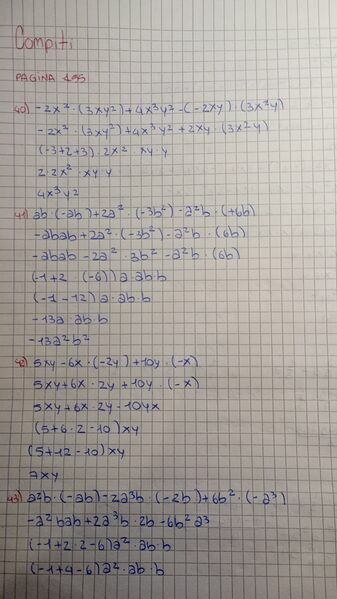 Compiti
PAGINA 195
40) -2x² · (3xy²) + 4x³y² - (-2xy) · (3x²y)
-2x² · (3xy²) + 4x³y² + 2xy · (3x²y)
(-3+2+3) · 2x² · xy · y
2 · 2x² · xy · y
4x³y²
41) ab · (-ab) + 2a² · (-3b²) - a²b · (+6b)
-abab + 2a² · (-3b²) - a²b · (6b)
-abab - 2a² · 3b² - a²b · (6b)
(-1+2 · (-6)) a · ab · b
(-1-12) a · ab · b
-13a · ab · b
-13a²b²
42) 5xy - 6x · (-2y) + 10y · (-x)
5xy + 6x · 2y + 10y · (-x)
5xy + 6x · 2y - 10yx
(5+6 · 2-10) xy
(5+12-10) xy
7xy
43) a²b · (-ab) - 2a³b · (-2b) + 6b² · (-a³)
-a²bab + 2a³b · 2b - 6b²a³
(-1+2 · 2-6) a² · ab · b
(-1+4-6) a² · ab · b